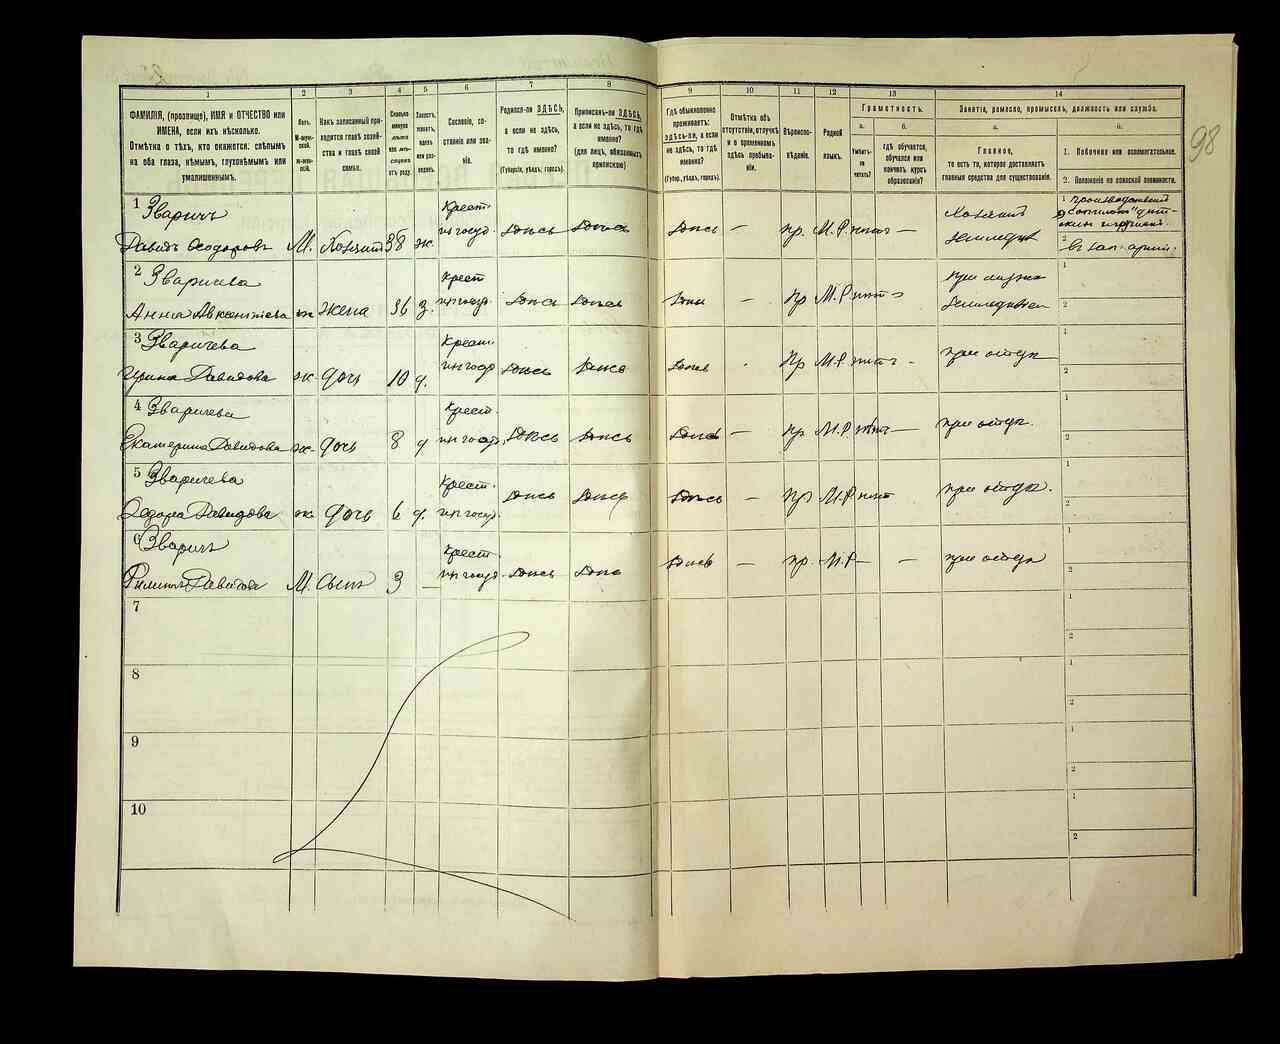 98
1 2 3 4 5 6 7 8 9 10 11 12 13 14
ФАМИЛІЯ, (прозвище), ИМЯ и ОТЧЕСТВО или
ИМЕНА, если ихъ нѣсколько.
Отмѣтка о тѣхъ, кто окажется: слѣпымъ
на оба глаза, нѣмымъ, глухонѣмымъ или
умалишеннымъ.
Полъ.
М-муж-
ской.
Ж-жен-
скій.
Какъ записанный при-
ходится главѣ хозяй-
ства и главѣ своей
семьи.
Сколько
минуло
лѣтъ
или мѣ-
сяцевъ
отъ роду.
Холостъ,
женатъ,
вдовъ
или раз-
веденъ.
Сословіе, со-
стояніе или зва-
ніе.
Родился-ли ЗДѢСЬ,
а если не здѣсь,
то гдѣ именно?
(Губернія, уѣздъ, городъ).
Приписанъ-ли ЗДѢСЬ,
а если не здѣсь, то гдѣ
именно?
(для лицъ, обязанныхъ
припискою)
Гдѣ обыкновенно
проживаетъ:
здѣсь-ли, а если
не здѣсь, то гдѣ
именно?
(Губер., уѣздъ, городъ).
Отмѣтка объ
отсутствіи, отлучкѣ
и о временномъ
здѣсь пребыва-
ніи.
Вѣроиспо-
вѣданіе.
Родной
языкъ.
Грамотность.
а. б.
Умѣетъ-
ли
читать?
гдѣ обучается,
обучался или
кончилъ курсъ
образованія?
Занятіе, ремесло, промыселъ, должность или служба.
а. б.
Главное,
то есть то, которое доставляетъ
главныя средства для существованія.
1. Побочное или вспомогательное.
2. Положеніе по воинской повинности.
1 Зваричъ
Давидъ Ѳеодоровъ М. Хозяинъ 38 ж. Крест. здѣсь здѣсь здѣсь — пр. М.Р. нѣтъ — Хозяинъ
2 Зваричева
Анна Авксентіева ж жена 36 З. крест здѣсь здѣсь — пр М.Р. нѣтъ
3 Зваричева
Ирина Давидова ж. дочь 10 д. Крест. здѣсь здѣсь здѣсь Пр М.Р. нѣтъ — при отцѣ
4 Зваричева
Екатерина Давидова ж. дочь 8 д Крест. здѣсь здѣсь здѣсь — пр М.Р. нѣтъ — при отцѣ.
5 Зваричева
Ѳедора Давидова ж. дочь 6 д. Крест. здѣсь здѣсь здѣсь — пр М.Р. нѣтъ при отцѣ.
6 Зваричъ
Филипъ Давидовъ М. Сынъ 3 — Крест здѣсь здѣсь здѣсь — пр. М.Р. — — при отцѣ
7
8
9
10